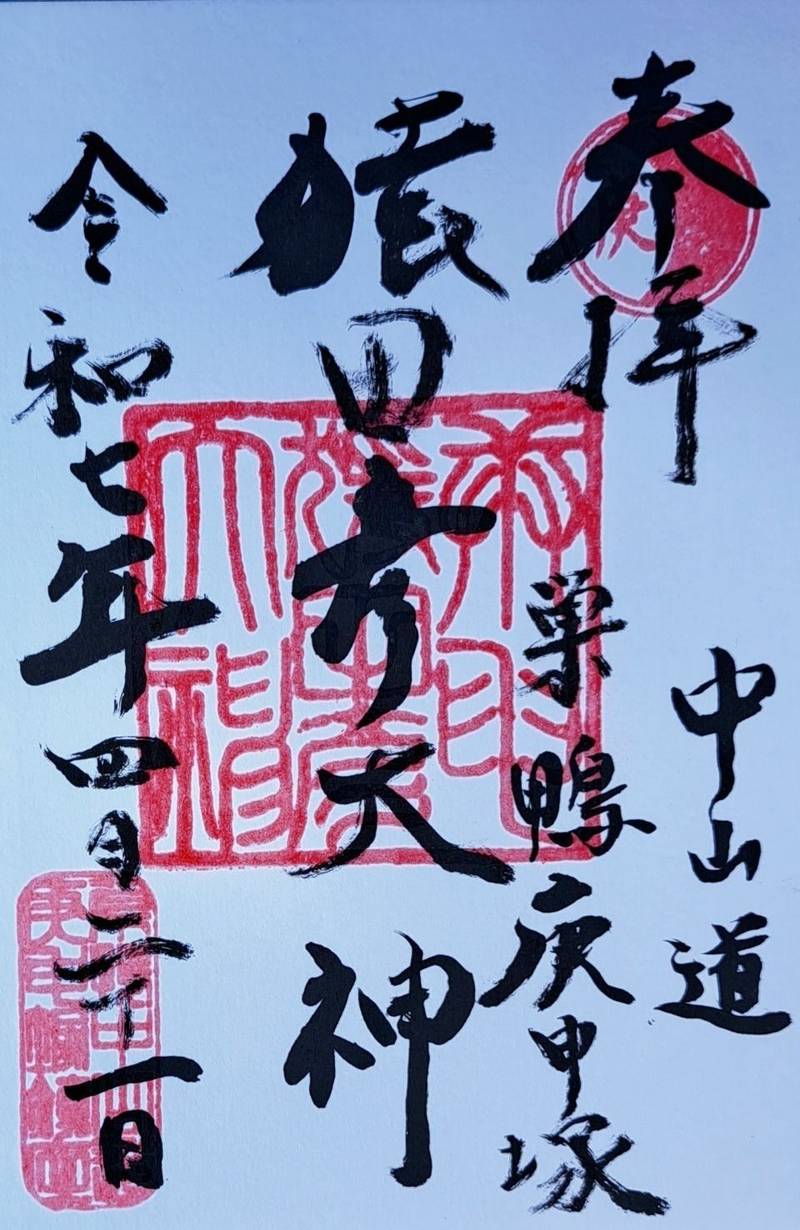 奉拝
中山道
巣鴨庚申塚
猿田彦大神
令和七年四月二十一日